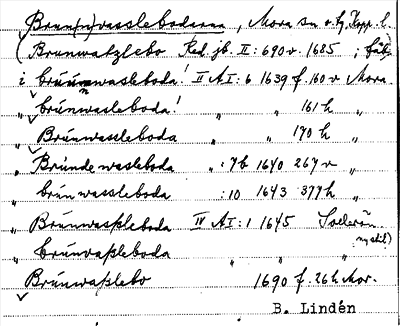 Brun(n)vasslebodarna, Mora sn o. hg, Kopp. l.
(Brunwatzlebo Red. jb. II: 690 v. 1685, ; fäb.)
i Brúnwasleboda! II AI: 6 1639 f. 160 v Mora
" brúnwasleboda! " " 161 h "
" Brúnwassleboda " " 170 h "
" Brúndewasleboda " : 7b 1640 267 v "
" brún wassleboda : 10 1643 377 h "
" Brúnwassleboda IV AI: 1 1645
" Brúnvassleboda " "
Brúnwasslebo 1690 f. 26 h Mor.
B. Lindén